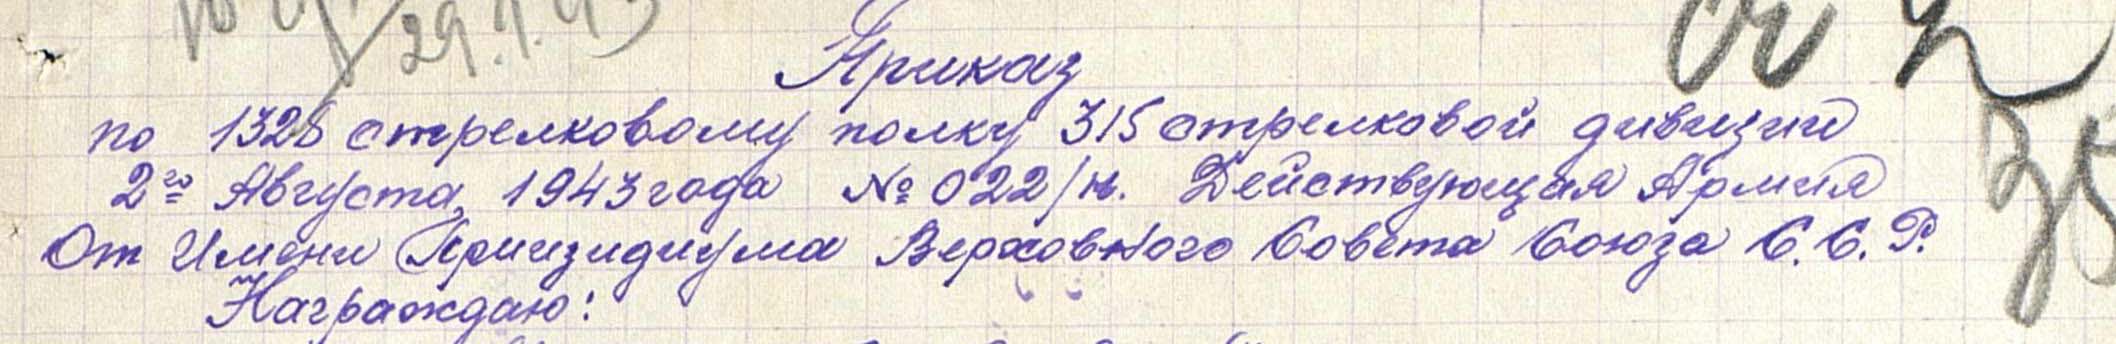 29.9.43
Приказ
по 1328 стрелковому полку 315 стрелковой дивизии
2го Августа 1943 года № 022/н. Действующая Армия
От Имени Призидиума Верховного Совета Союза С.С.Р.
Награждаю: